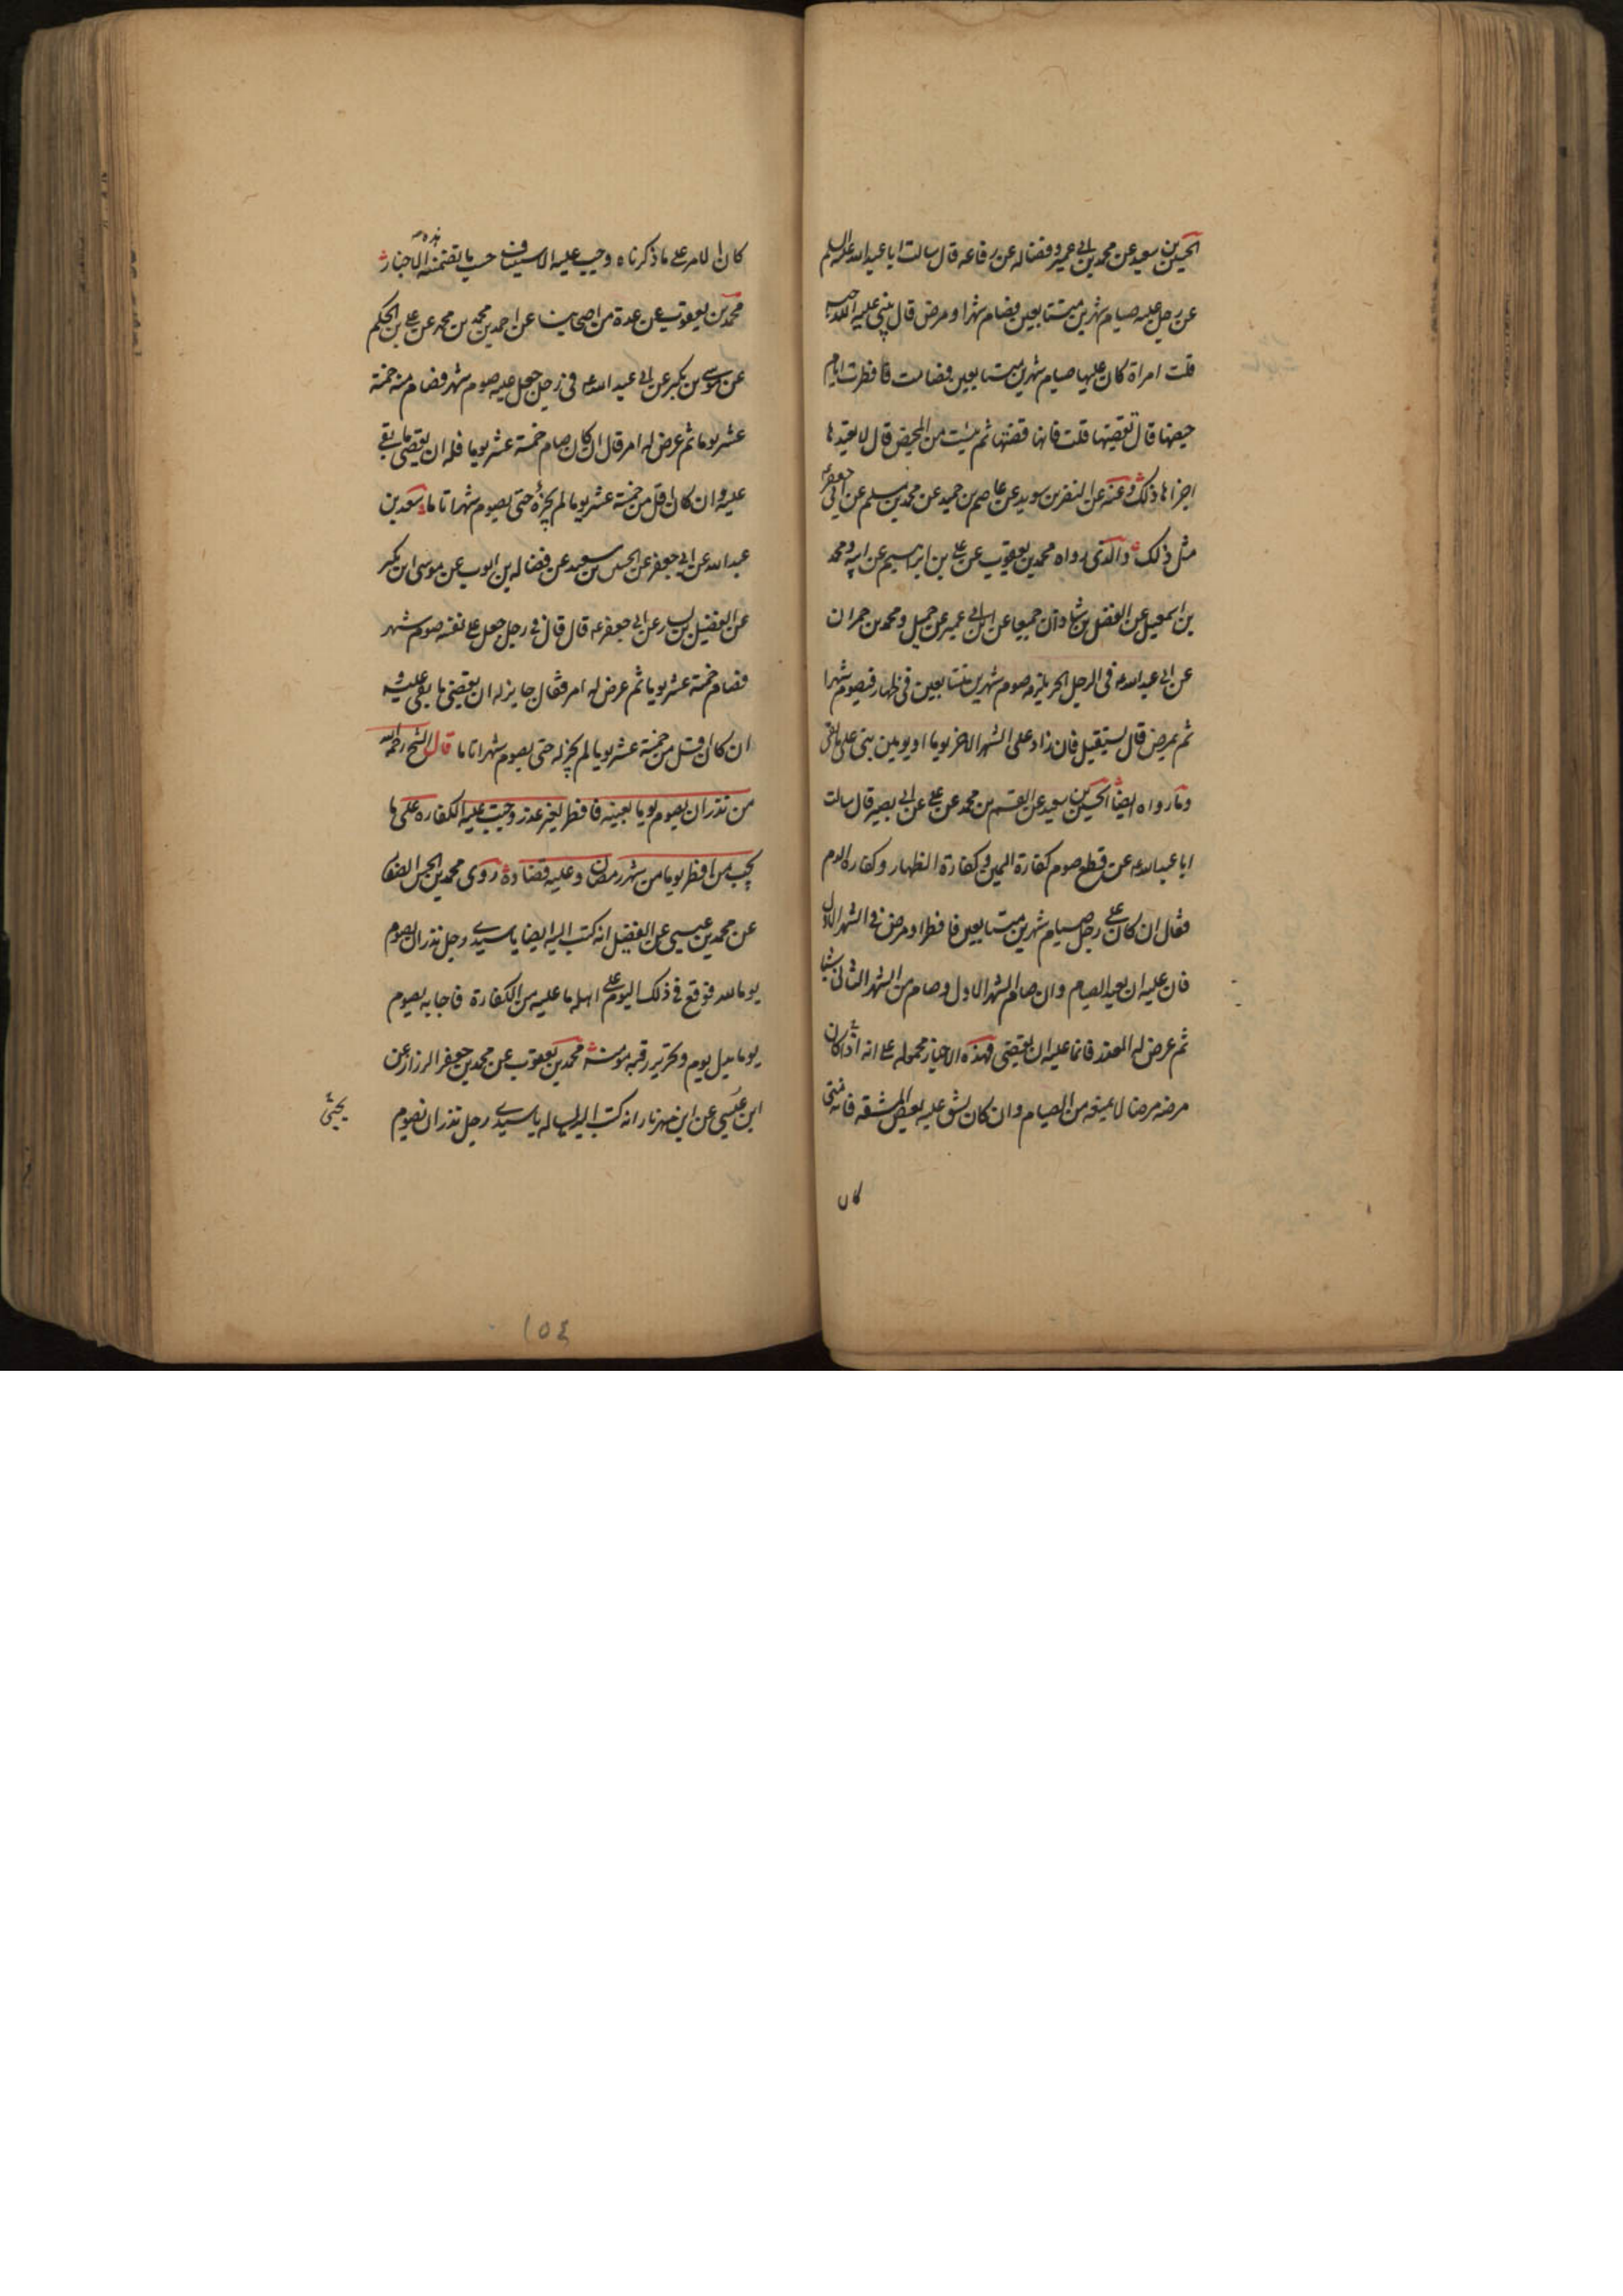 الحسين بن سعيد عن محمد بن ابي عمير وفضاله عن رفاعه قال سالت ابا عبد الله عليه السلم
عن رجل عليه صيام شهرين متتابعين فصام شهرا ومرض قال يبني عليه الله حبسه
قلت امراة كان عليها صيام شهرين متتابعين فصامت فافطرت ايام
حيضها قال تقضيها قلت فانها قضتها ثم يئست من المحيض قال لا يعيدها
اجزاها ذلك وعنه عن النضر بن سويد عن عاصم بن حميد عن محمد بن مسلم عن ابي جعفر ع
مثل ذلك والذي رواه محمد بن يعقوب عن علي بن ابراهيم عن ابيه ومحمد
بن اسمعيل عن الفضل بن شاذان جميعا عن ابن ابي عمير عن جميل ومحمد بن حمران
عن ابي عبد الله ع في الرجل الحر يلزمه صوم شهرين متتابعين في ظهار فيصوم شهرا
ثم يمرض قال يستقبل فان زاد على الشهر الاخر يوما او يومين بنى على ما بقي
وما رواه ايضا الحسين بن سعيد عن القسم بن محمد عن علي عن ابي بصير قال سالت
ابا عبد الله ع عن قطع صوم كفارة اليمين وكفارة الظهار وكفارة الدم
فقال ان كان على رجل صيام شهرين متتابعين فافطر او مرض في الشهر الاول
فان عليه ان يعيد الصيام وان صام الشهر الاول وصام من الشهر الثاني شيا
ثم عرض له العذر فانما عليه ان يقضي فهذه الاخبار محموله على انه اذا كان
مرضه مرضا لا يمنعه من الصيام وان كان يشق عليه بعض المشقه فانه متى
كان
كان الامر على ما ذكرناه وجب عليه الاستيناف حسب ما تضمنه هذه الاخبار
محمد بن يعقوب عن عدة من اصحابنا عن احمد بن محمد بن محمد عن علي بن الحكم
عن موسى بن بكر عن ابي عبد الله ع في رجل جعل عليه صوم شهر فصام منه خمسة
عشر يوما ثم عرض له امر قال ان كان صام خمسة عشر يوما فله ان يقضي ما بقي
عليه وان كان اقل من خمسة عشر يوما لم يجزه حتى يصوم شهرا تاما سعد بن
عبد الله عن ابي جعفر عن الحسين بن سعيد عن فضاله بن ايوب عن موسى ابن بكر
عن الفضيل بن يسار عن ابي جعفر ع قال قال في رجل جعل على نفسه صوم شهر
فصام خمسة عشر يوما ثم عرض له امر فقال جايز له ان يقضي ما بقي عليه و
ان كان اقل من خمسة عشر يوما لم يجز له حتى يصوم شهرا تاما قال الشيخ رحمه الله
من نذر ان يصوم يوما بعينه فافطر لغير عذر وجبت عليه الكفاره على ما
يجب من افطر يوما من شهر رمضان وعليه قضاؤه روى محمد بن الحسن الصفار
عن محمد بن عيسى عن الفضيل انه كتب اليه ايضا يا سيدي رجل نذر ان يصوم
يوما لله فوقع في ذلك اليوم على اهله ما عليه من الكفارة فاجابه يصوم
يوما بدل يوم وتحرير رقبه مومنه محمد بن يعقوب عن محمد بن جعفر الرزاز عن
ابن عيسى عن ابن مهزيار انه كتب اليه يساله يا سيدي رجل نذر ان يصوم
١٥٤